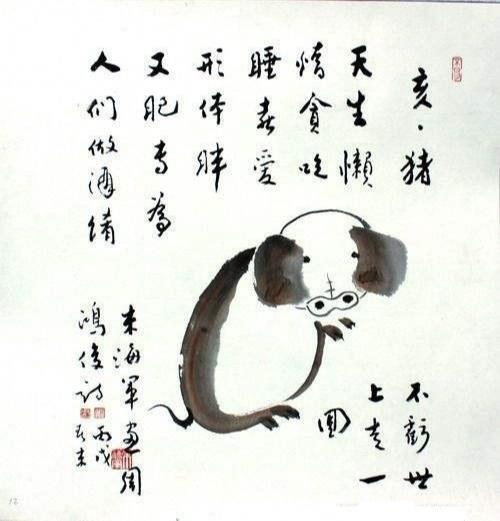 亥·猪
天生懒
惰贪吃
睡喜爱
形体胖
又肥专为
人们做酒
不虧世
上走一
回
朱海军画周
鸿俊诗
丙戌
12